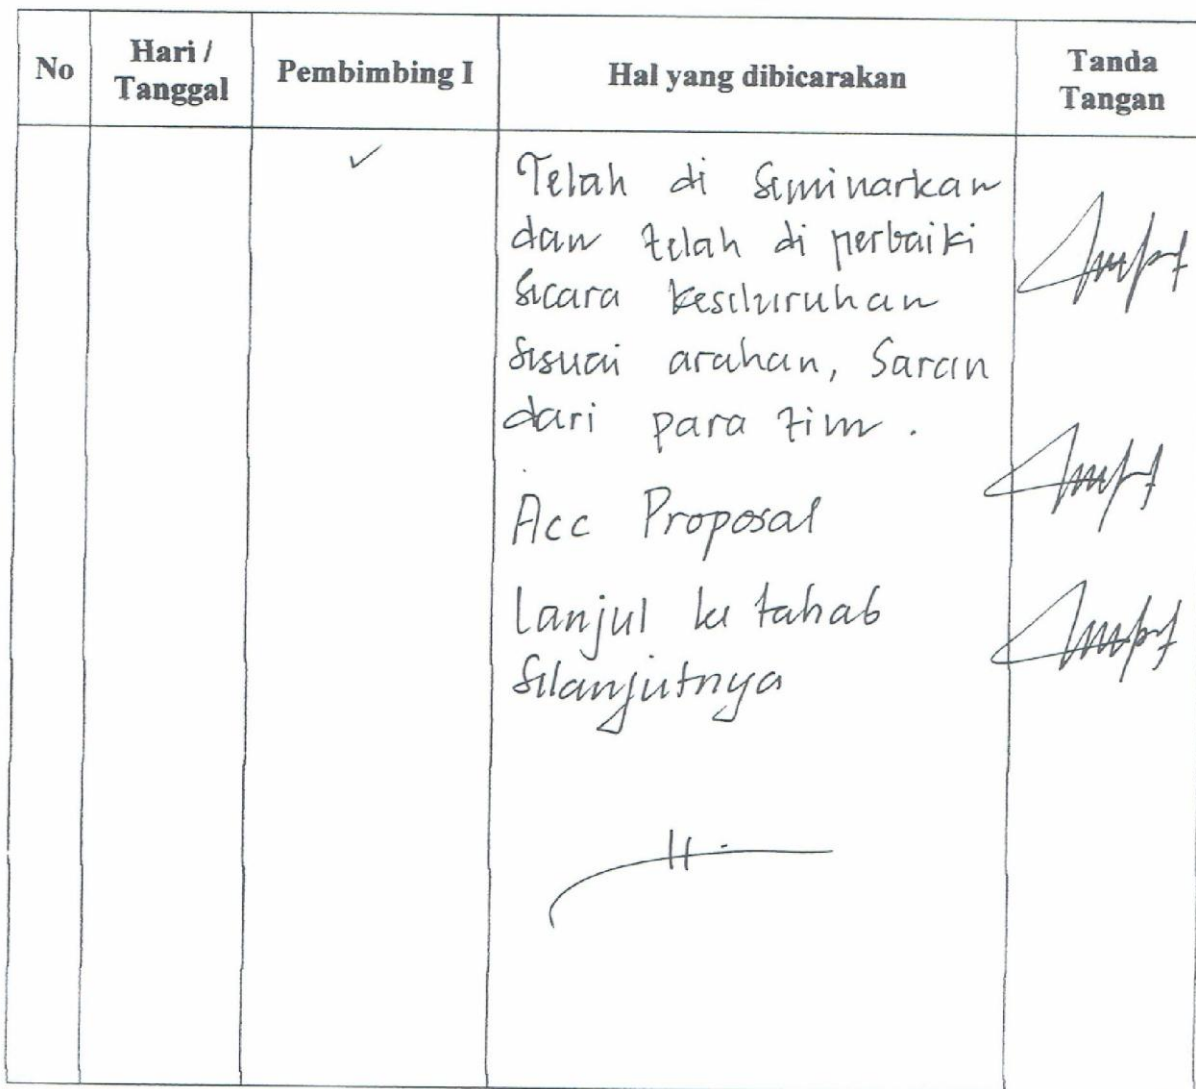 No
Hari /
Tanggal
Pembimbing I
Hal yang dibicarakan
Tanda
Tangan
✓
Telah di seminarkan
dan telah di perbaiki
secara keseluruhan
sesuai arahan, Saran
dari para tim.
Acc Proposal
Lanjut ke tahab
selanjutnya